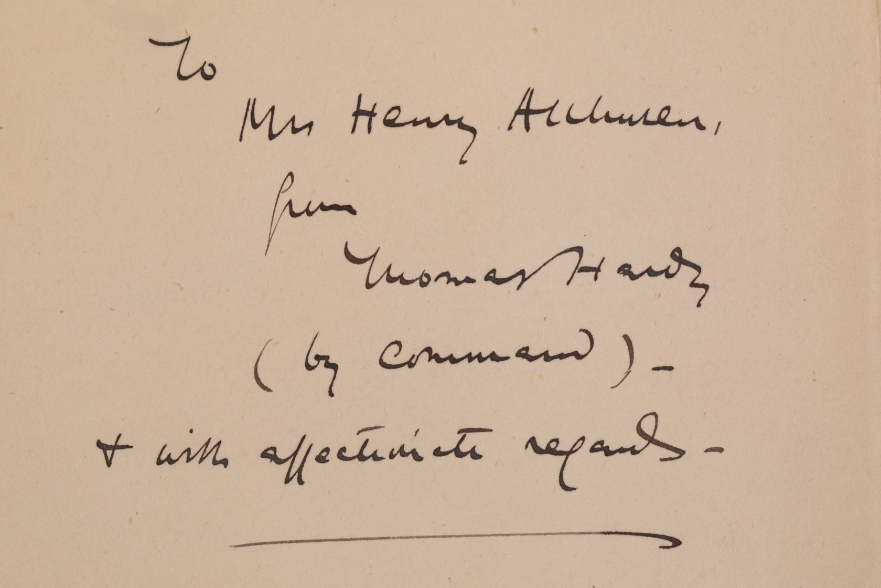 To
Mrs Henry Allhusen,
from
Thomas Hardy
(by command) -
& with affectionate regards -